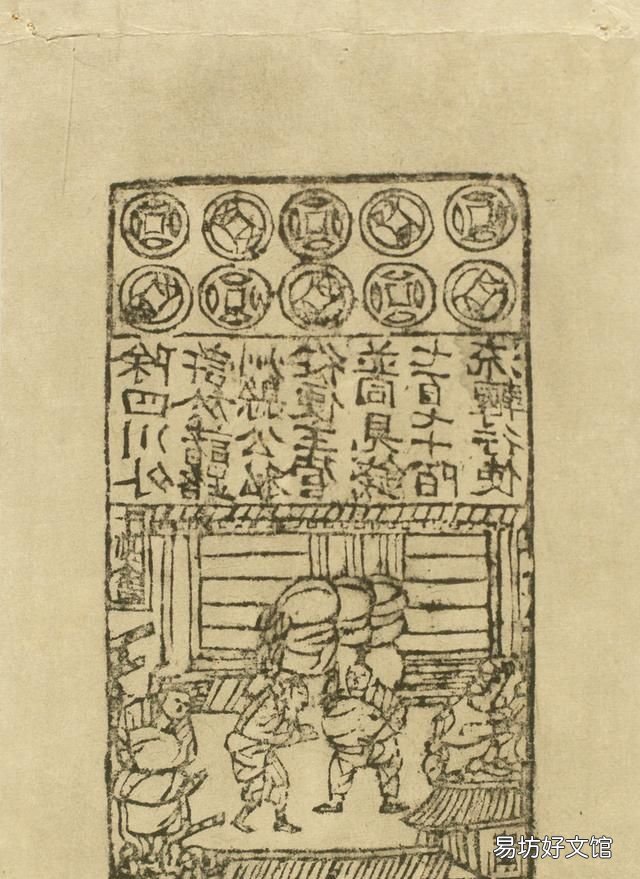 除四川外
許於諸路
州縣公私
從便主管
並同見錢
七百七十陌
流轉行使
易坊好文馆